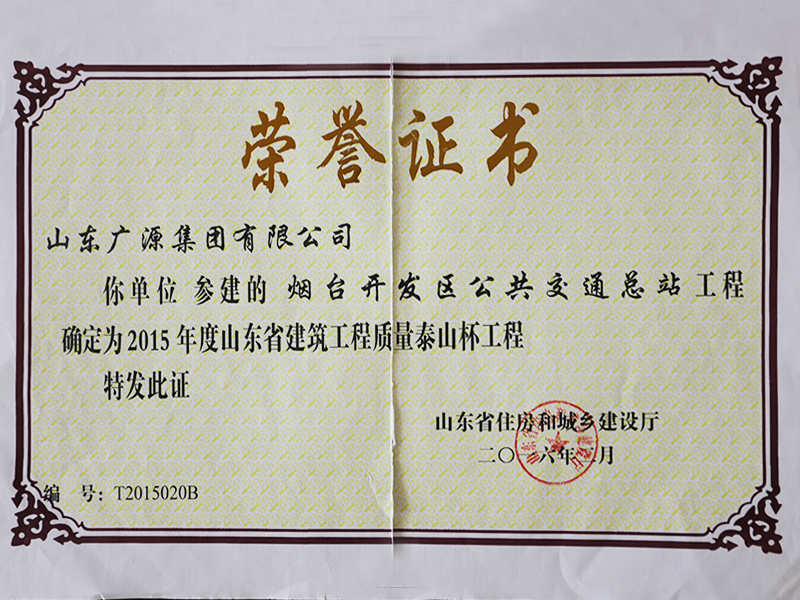 荣誉证书
山东广源集团有限公司
你单位 参建的 烟台开发区公共交通总站 工程
确定为2015年度山东省建筑工程质量泰山杯工程
特发此证
山东省住房和城乡建设厅
二〇一六年二月
编 号:T2015020B